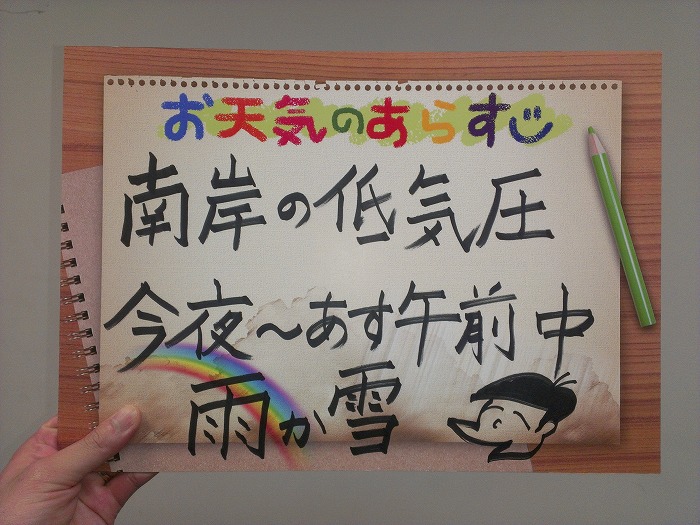 お天気のあらすじ
南岸の低気圧
今夜～あす午前中
雨か雪